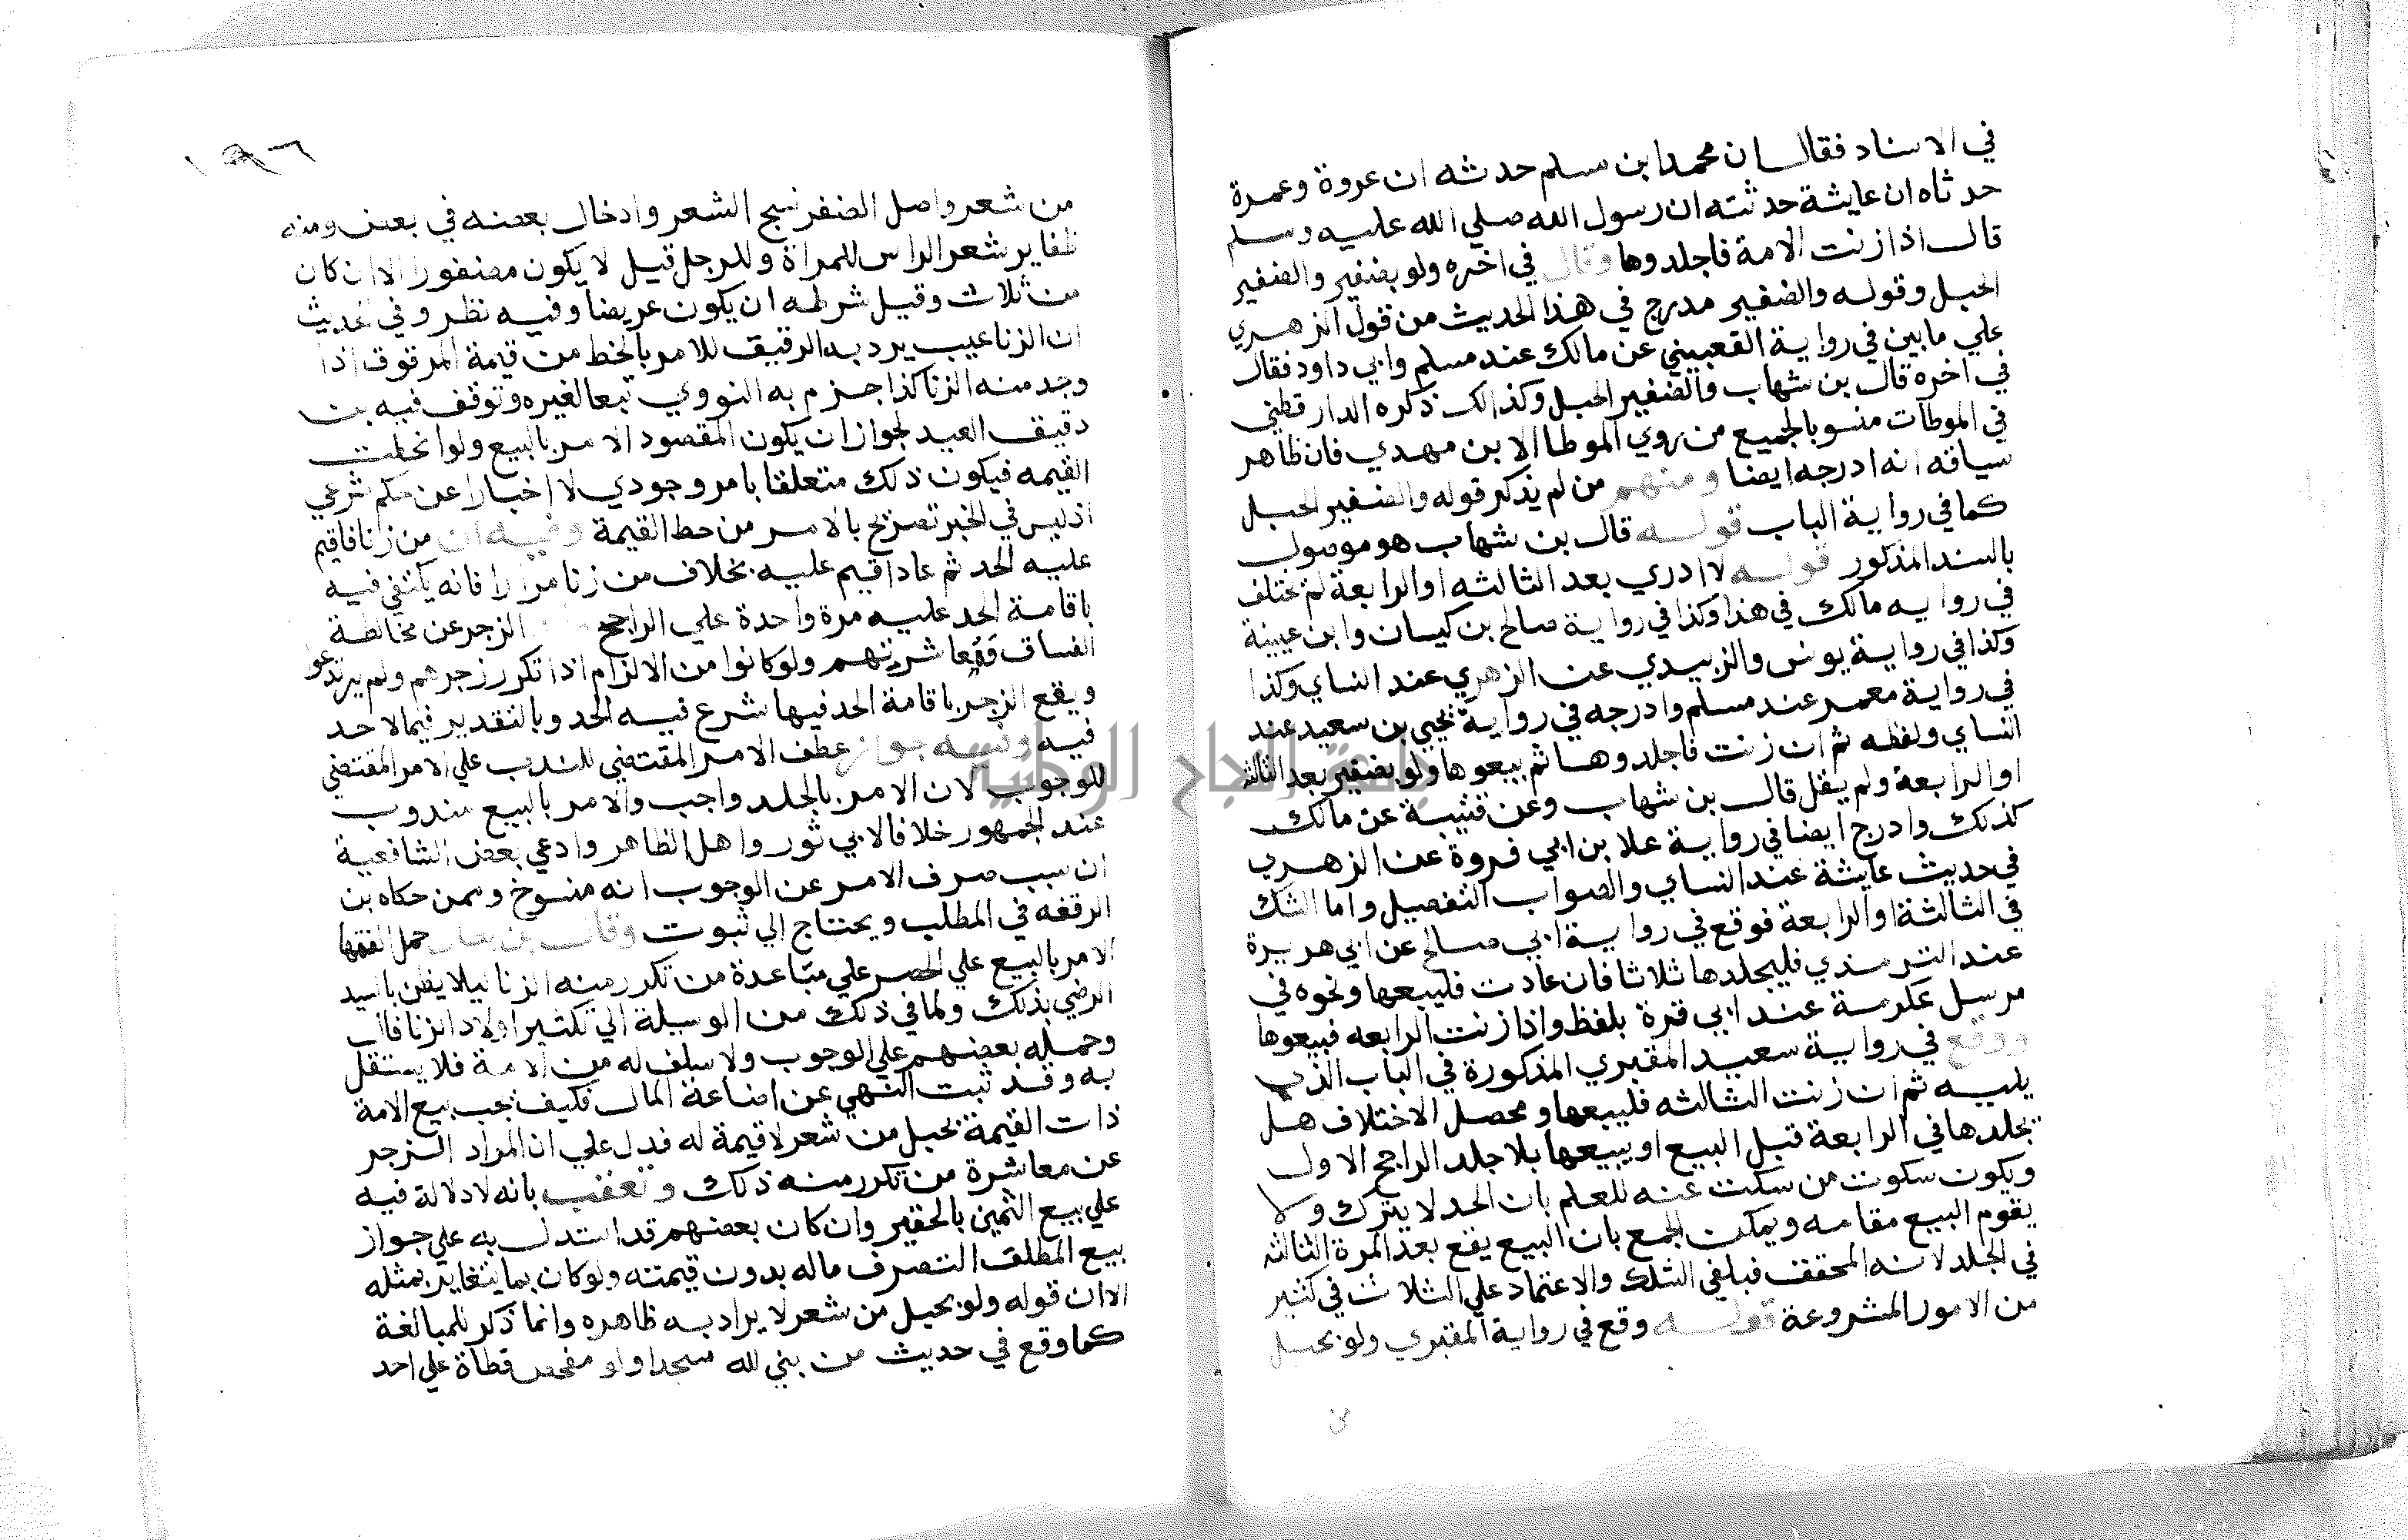 في الاسناد فقال ان محمدا بن مسلم حدثه ان عروة وعمرة
حدثاه ان عايشة حدثته ان رسول الله صلي الله عليه وسلم
قال اذا زنت الامة فاجلدوها وقال في اخره ولو بضفير والضفير
الحبل وقوله والضفير مدرج في هذا الحديث من قول الزهري
علي ما بين في رواية القعبيني عن مالك عند مسلم وابي داود فقال
في اخره قال بن شهاب والضفير الحبل وكذالك ذكره الدارقطني
في الموطات منسوبا لجميع من روي الموطا الا بن مهدي فان ظاهر
سياقه انه ادرجه ايضا ومنهم من لم يذكر قوله والضفير الحبل
كما في رواية الباب قوله قال بن شهاب هو موصول
بالسند المذكور قوله لا ادري بعد الثالثه او الرابعة لم يختلف
في روايه مالك في هذا وكذا في رواية صالح بن كيسان وابن عيينة
وكذا في رواية يونس والزبيدي عن الزهري عند النساي وكذا
في رواية معمر عند مسلم وادرجه في رواية يحيي بن سعيد عند
النساي ولفظه ثم ان زنت فاجلدوها ثم بيعوها ولو بضفير بعد الثالثه
او الرابعة ولم يقل قال بن شهاب وعن قتيبة عن مالك
كذلك وادرج ايضا في رواية علا بن ابي فروة عن الزهري
في حديث عايشة عند النساي والصواب التفصيل واما الشك
في الثالثة او الرابعة فوقع في رواية ابي صالح عن ابي هريرة
عند الترمذي فليجلدها ثلاثا فان عادت فليبعها ونحوه في
مرسل عكرمة عند ابي قرة بلفظ واذا زنت الرابعه فبيعوها
ووقع في رواية سعيد المقبري المذكورة في الباب الذي
يليه ثم ان زنت الثالثه فليبعها ومحصل الاختلاف هل
يجلدها في الرابعة قبل البيع او يبيعها بلا جلد الراجح الاول
ويكون سكوت من سكت عنه للعلم بان الحد لا يترك ولا
يقوم البيع مقامه ويمكن الجمع بان البيع يقع بعد المرة الثالثه
في الجلد لانه المحقق فيلغي الشك والاعتماد علي الثلاث في كثير
من الامور المشروعة قوله وقع في رواية المقبري ولو بحبل
من
١٩٦
من شعر واصل الضفر نسج الشعر وادخال بعضه في بعض ومنه
ظفاير شعر الراس للمراة وللرجل قيل لا يكون مضفورا الا ان كان
من ثلاث وقيل شرطه ان يكون عريضا وفيه نظر وفي الحديث
ان الزنا عيب يرد به الرقيق للامر بالخط من قيمة المرقوق اذا
وجد منه الزنا كذا جزم به النووي تبعا لغيره وتوقف فيه بن
دقيق العيد لجواز ان يكون المقصود الامر بالبيع ولو انحطت
القيمه فيكون ذلك متعلقا بامر وجودي لا اخبارا عن حكم شرعي
اذ ليس في الخبر تصريح بالامر من حط القيمة وفيه ان من زنا فاقيم
عليه الحد ثم عاد اقيم عليه بخلاف من زنا مرارا فانه يكتفي فيه
باقامة الحد عليه مرة واحدة علي الراجح الزجر عن مخالطة
الفساق ومعاشرتهم ولو كانوا من الالزام اذا تكرر زجرهم ولم يرتدعوا
ويقع الزجر باقامة الحد فيها شرع فيه الحد وبالتقدير فيما لا حد
فيه وفيه جواز عطف الامر المقتضي للندب علي الامر المقتضي
للوجوب لان الامر بالجلد واجب والامر بالبيع مندوب
عند الجمهور خلافا لابي ثور واهل الظاهر وادعي بعض الشافعية
ان سبب صرف الامر عن الوجوب انه منسوخ وممن حكاه بن
الرفعه في المطلب ويحتاج الي ثبوت وقال بن بطال حمل الفقها
الامر بالبيع علي الحصر علي متباعدة من تكرر منه الزنا ليلا يظن بالسيد
الرضي بذلك ولما في ذلك من الوسيلة الي تكثير اولاد الزنا قال
وحمله بعضهم علي الوجوب ولا سلف له من الامة فلا يستقل
به وقد ثبت النهي عن اضاعة المال فكيف يجب بيع الامة
ذات القيمة بحبل من شعر لا قيمة له فدل علي ان المراد الزجر
عن معاشرة من تكرر منه ذلك وتعقب بانه لا دلالة فيه
علي بيع الثمين بالحقير وان كان بعضهم قد استدل به علي جواز
بيع المطلق التصرف ماله بدون قيمته ولو كان بما يتغاير بمثله
الا ان قوله ولو بحبل من شعر لا يراد به ظاهره وانما ذكر للمبالغة
كما وقع في حديث من بني لله مسجدا ولو مفحص قطاة علي احد
جامعة النجاح الوطنية